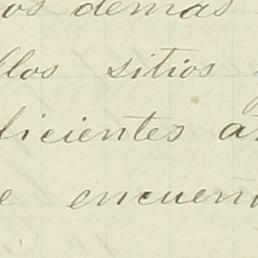 os demas
llos sitios
ficientes a
e encuen